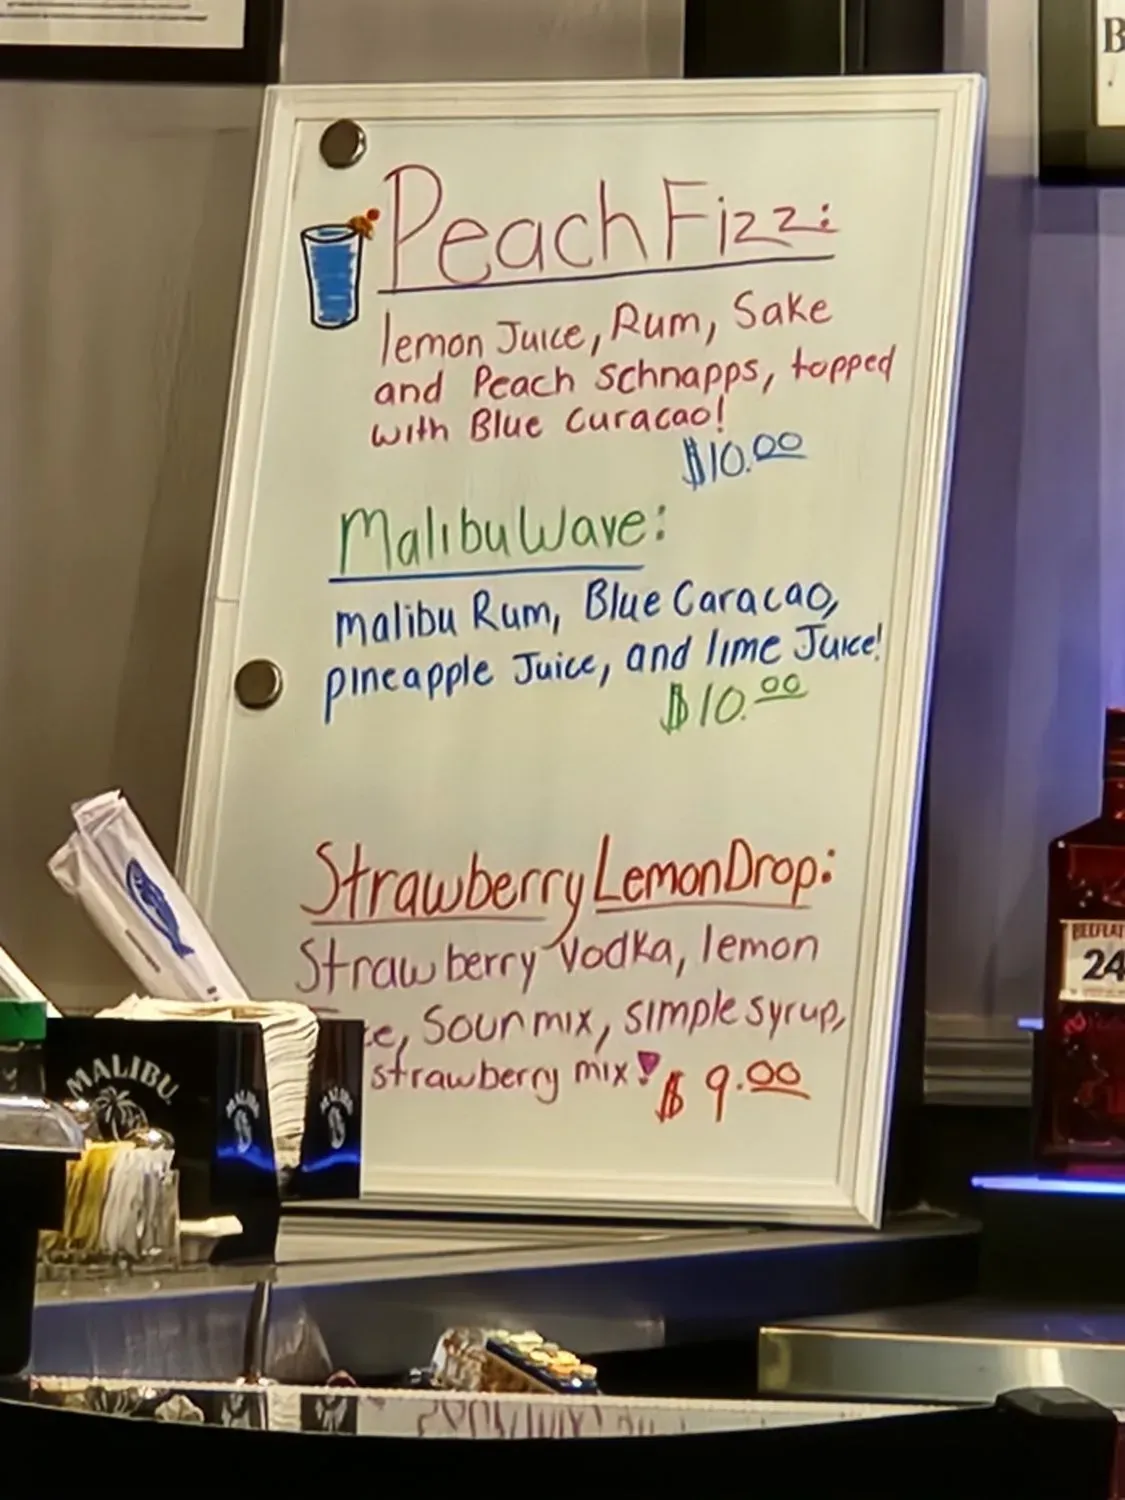 Peach Fizz:
lemon Juice, Rum, Sake
and Peach schnapps, topped
with Blue Curacao!
$10.00
Malibu Wave:
malibu Rum, Blue Caracao,
pineapple Juice, and lime Juice!
$10.00
Strawberry Lemon Drop:
Strawberry Vodka, lemon
Sour mix, simple syrup,
strawberry mix!
$9.00
MALIBU
MALIBU
MALIBU
24
B